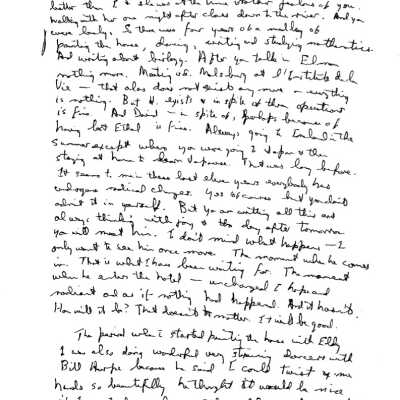 better than I
walking with her one night after class down to the river. And you
were lonely. So there was four years of a medley of
painting the house, dancing, writing and studying mathematics.
And writing about biology. After you talk in
nothing more. at l'Institute de la
Vie — that also does not exist any more — everything
is nothing. But H. exists & in spite of them operations
is fine. And David — in spite of, perhaps because of
having lost Ethel is fine. Always going to in the
Summer except when you were going to Japan & then
staying at home to learn Japanese. That was long before.
It seems to me in these last eleven years everybody has
undergone radical changes. You of course but you don't
admit it in yourself. But you are writing all this and
always thinking with joy & the day after tomorrow
you will meet him. I don't mind what happens — I
only want to see him once more. The moment when he comes
in. That is what I have been waiting for. The moment
when he enters the hotel — unchanged I hope and
radiant and as if nothing had happened. And it hasn't.
How will it be? That doesn't matter. It will be good.
The period when I started painting the house with Elly
I was also doing wonderful very straining dances with
Bill because he said I could twist my
hands so beautifully he thought it would be nice